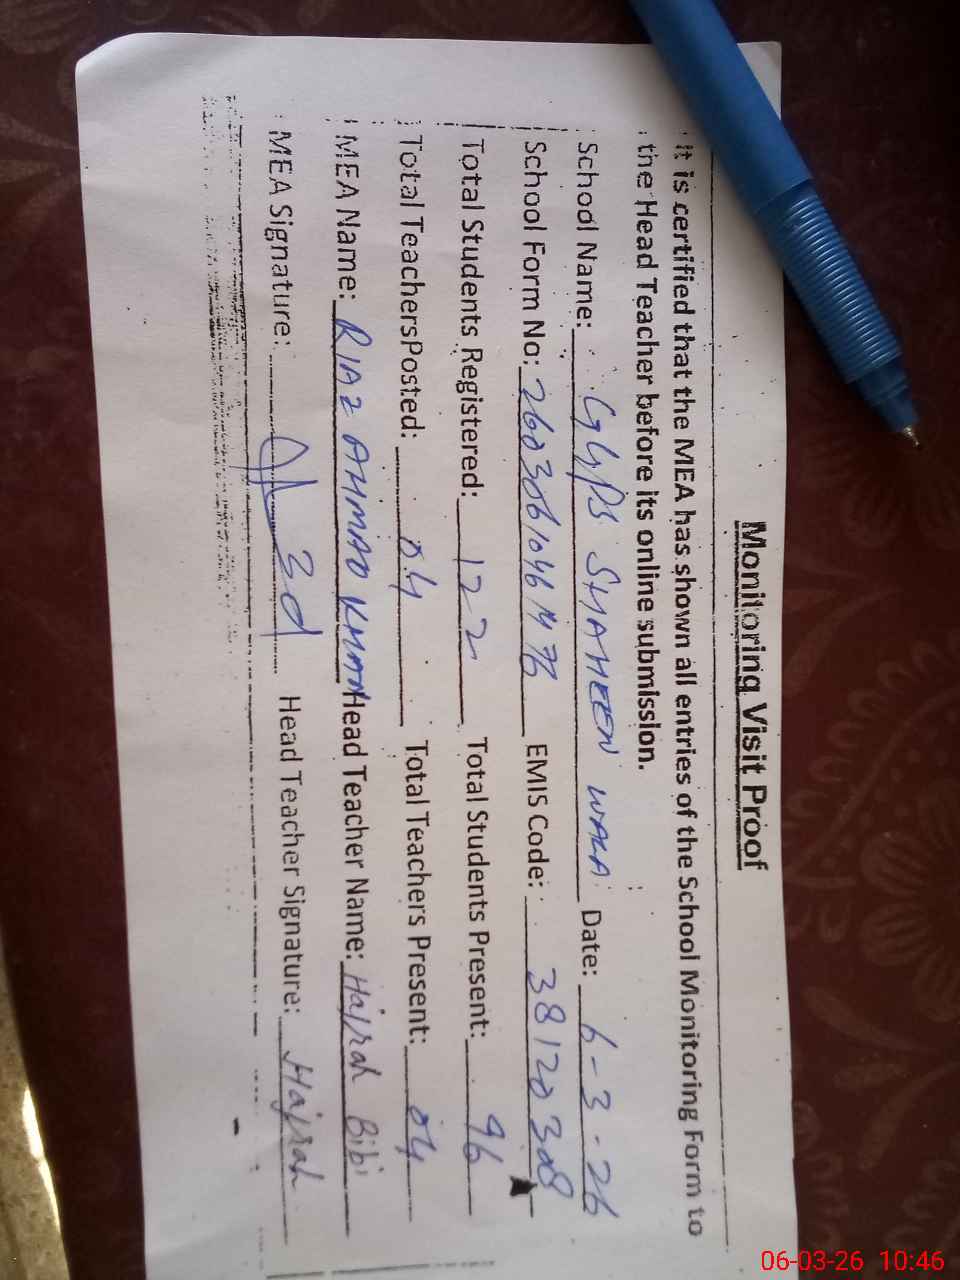 Monitoring Visit Proof
it is certified that the MEA has shown all entries of the School Monitoring Form to
the Head Teacher before its online submission.
School Name: GGPS SHAHEEN WALA Date: 6-3-26
School Form No: EMIS Code: 38120308
Total Students Registered: 122 Total Students Present: 96
Total TeachersPosted: 04 Total Teachers Present: 04
MEA Name: RIAZ AHMAD KHAN Head Teacher Name: Hajrah Bibi
MEA Signature: Head Teacher Signature: Hajrah
06-03-26 10:46